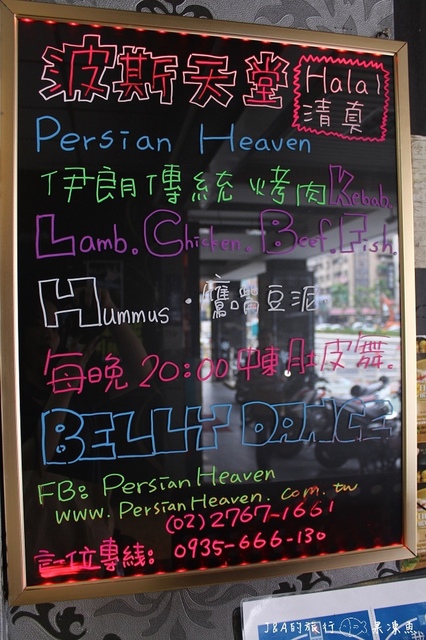 波斯天堂
Halal
清真
Persian Heaven
伊朗傳統烤肉Kebab.
Lamb. Chicken. Beef. Fish.
Hummus · 鷹嘴豆泥
每晚20:00 肚皮舞.
BELLY DANCE
FB: Persian Heaven
www.PersianHeaven.com.tw
(02) 2767-1661
訂位專線: 0935-666-130
J&A的旅行 呆凍魚